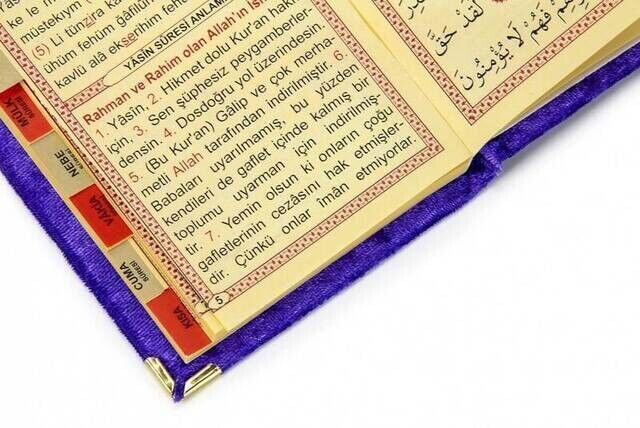 müstekıym
(5) Li tünzira
ühüm fehüm ğâfilûn
kavlü alâ ekserihim fehüm
YASİN SÛRESİ ANLAMI
Rahman ve Rahim olan Allah'ın
1. Yâsîn, 2. Hikmet dolu Kur'an hakkı
için, 3. Sen şüphesiz peygamberler-
densin. 4. Dosdoğru yol üzerindesin.
5. (Bu Kur'an) Gâlip ve çok merha-
metli Allah tarafından indirilmiştir. 6.
Babaları uyarılmamış, bu yüzden
kendileri de gaflet içinde kalmış bir
toplumu uyarman için indirilmiş-
tir. 7. Yemin olsun ki onların çoğu
gafletlerinin cezâsını hak etmişler-
dir. Çünkü onlar îmân etmiyorlar.
5
لَقَدْ حَقَّ
فَهُمْ لَا يُؤْمِنُونَ
MÜLK
SÛRESİ
NEBE
VAKIA
CUMA
SÛRESİ
KISA